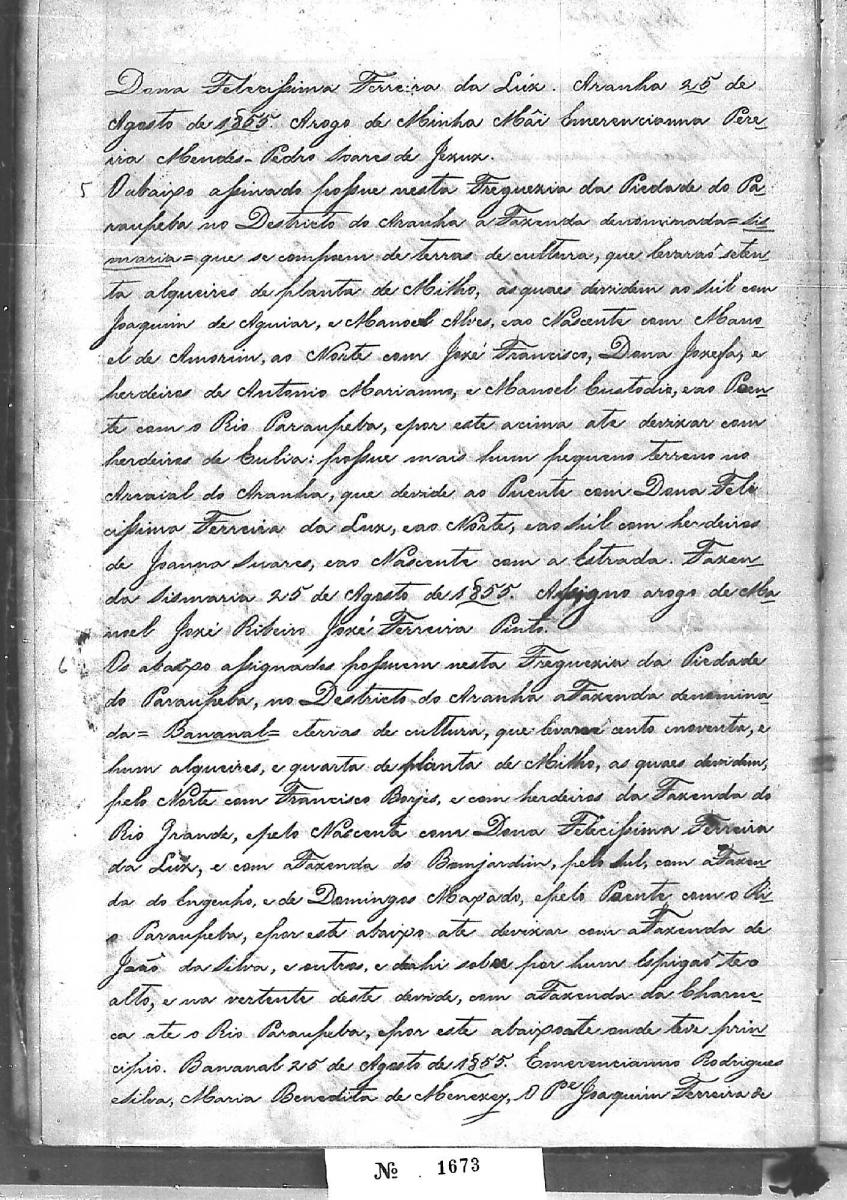 Dona Felecissima Ferreira da Lúz. Aranha 25 de
Agosto de 1855. Arogo de Minha Mãi Emerencianna Pere-
ira Mendes - Pedro Soares de Jezuz.
5 O abaixo assinado possue nesta Freguezia da Piedade do Pa-
raupeba no Destricto do Aranha a Fazenda denominada = sis-
maria = que se compoem de terras de cultura, que levaraõ seten-
ta alqueires de planta de Milho, as quaes devidem ao súl com
Joaquim de Aguiar, e Manoel Alves, eao Nascente com Mano-
el de Amorim, ao Norte com Jozé Francisco, Dona Jozefa, e
herdeiros de Antonio Marianno, e Manoel Custodio, eao Poen-
te com o Rio Paraupeba, epor este acima ate devizar com
herdeiros de Eulia: possue mais hum pequeno terreno no
Arraial do Aranha, que devide ao Puente com Dona Fele-
cissima Ferreira da Luz, eao Norte, eao súl com herdeiros
de Joanna Suares, eao Nascente com a Estrada. Fazen-
da Sismaria 25 de Agosto de 1855. Assigno arogo de Ma-
noel Jozé Ribeiro Jozé Ferreira Pinto.
6 Os abaixo assignados possuem nesta Freguezia da Piedade
do Paraupeba, no Destricto do Aranha aFazenda denomina-
da = Bananal = eterras de cultura, que levara cento enoventa, e
hum alqueires, e quarta de planta de Milho, as quaes devidem,
pelo Norte com Francisco Borjes, e com herdeiros da Fazenda do
Rio Grande, epelo Nascente com Dona Felecissima Ferreira
da Lúz, e com aFazenda do Bomjardim, pelo sul, com aFazen-
da do Engenho, e de Domingos Maxado, epelo Poente com o Ri-
o Paraupeba, epor este abaixo ate devizar com aFazenda de
Joaõ da Silva, e outros, e dahi sobe por hum Espigaõ te o
alto, e na vertente deste devide, com aFazenda da Charne-
ca ate o Rio Paraupeba, epor este abaixo ate onde teve prin-
cipio. Bananal 25 de Agosto de 1855. Emerencianno Rodrigues
eSilva, Maria Benedita de Menezes, O Pe Joaquim Ferreira de
Nº 1673